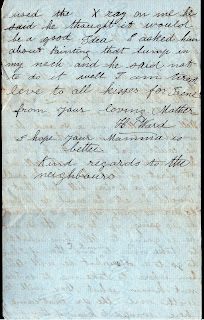 used the X ray on me he
said he thought it would
be a good Idea I asked him
about Painting that lump in
my neck and he said not
to do it well I am
love to all kisses for
from your loving Mother
H. Ward
I hope your Mamma is
better
Kind regards to the
neighbours